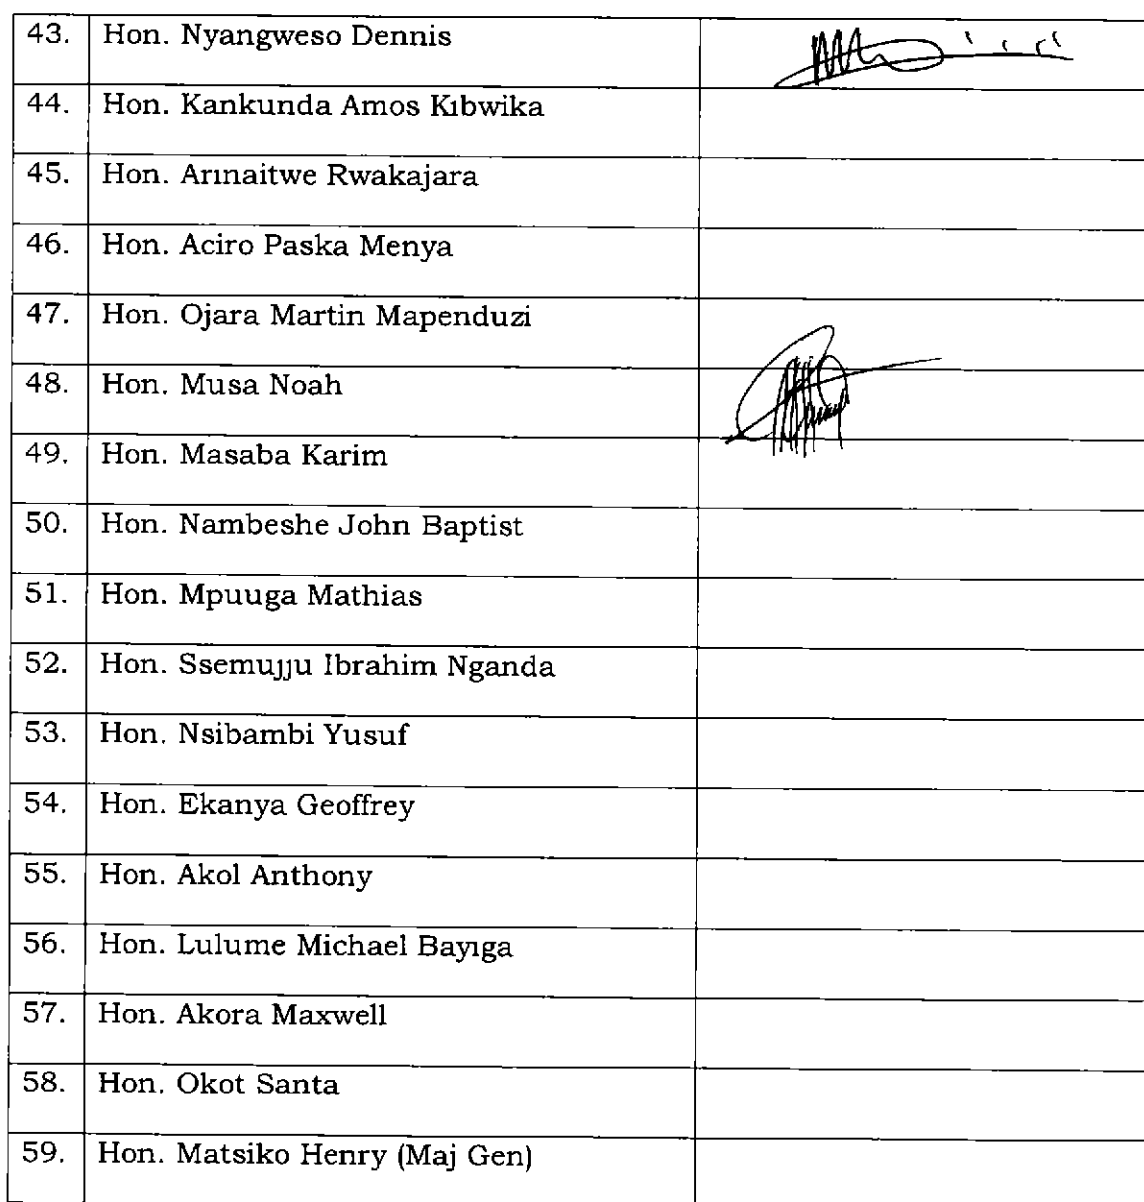 43. Hon. Nyangweso Dennis
44. Hon. Kankunda Amos Kıbwika
45. Hon. Arınaitwe Rwakajara
46. Hon. Aciro Paska Menya
47. Hon. Ojara Martin Mapenduzi
48. Hon. Musa Noah
49. Hon. Masaba Karim
50. Hon. Nambeshe John Baptist
51. Hon. Mpuuga Mathias
52. Hon. Ssemujju Ibrahim Nganda
53. Hon. Nsibambi Yusuf
54. Hon. Ekanya Geoffrey
55. Hon. Akol Anthony
56. Hon. Lulume Michael Bayıga
57. Hon. Akora Maxwell
58. Hon. Okot Santa
59. Hon. Matsiko Henry (Maj Gen)